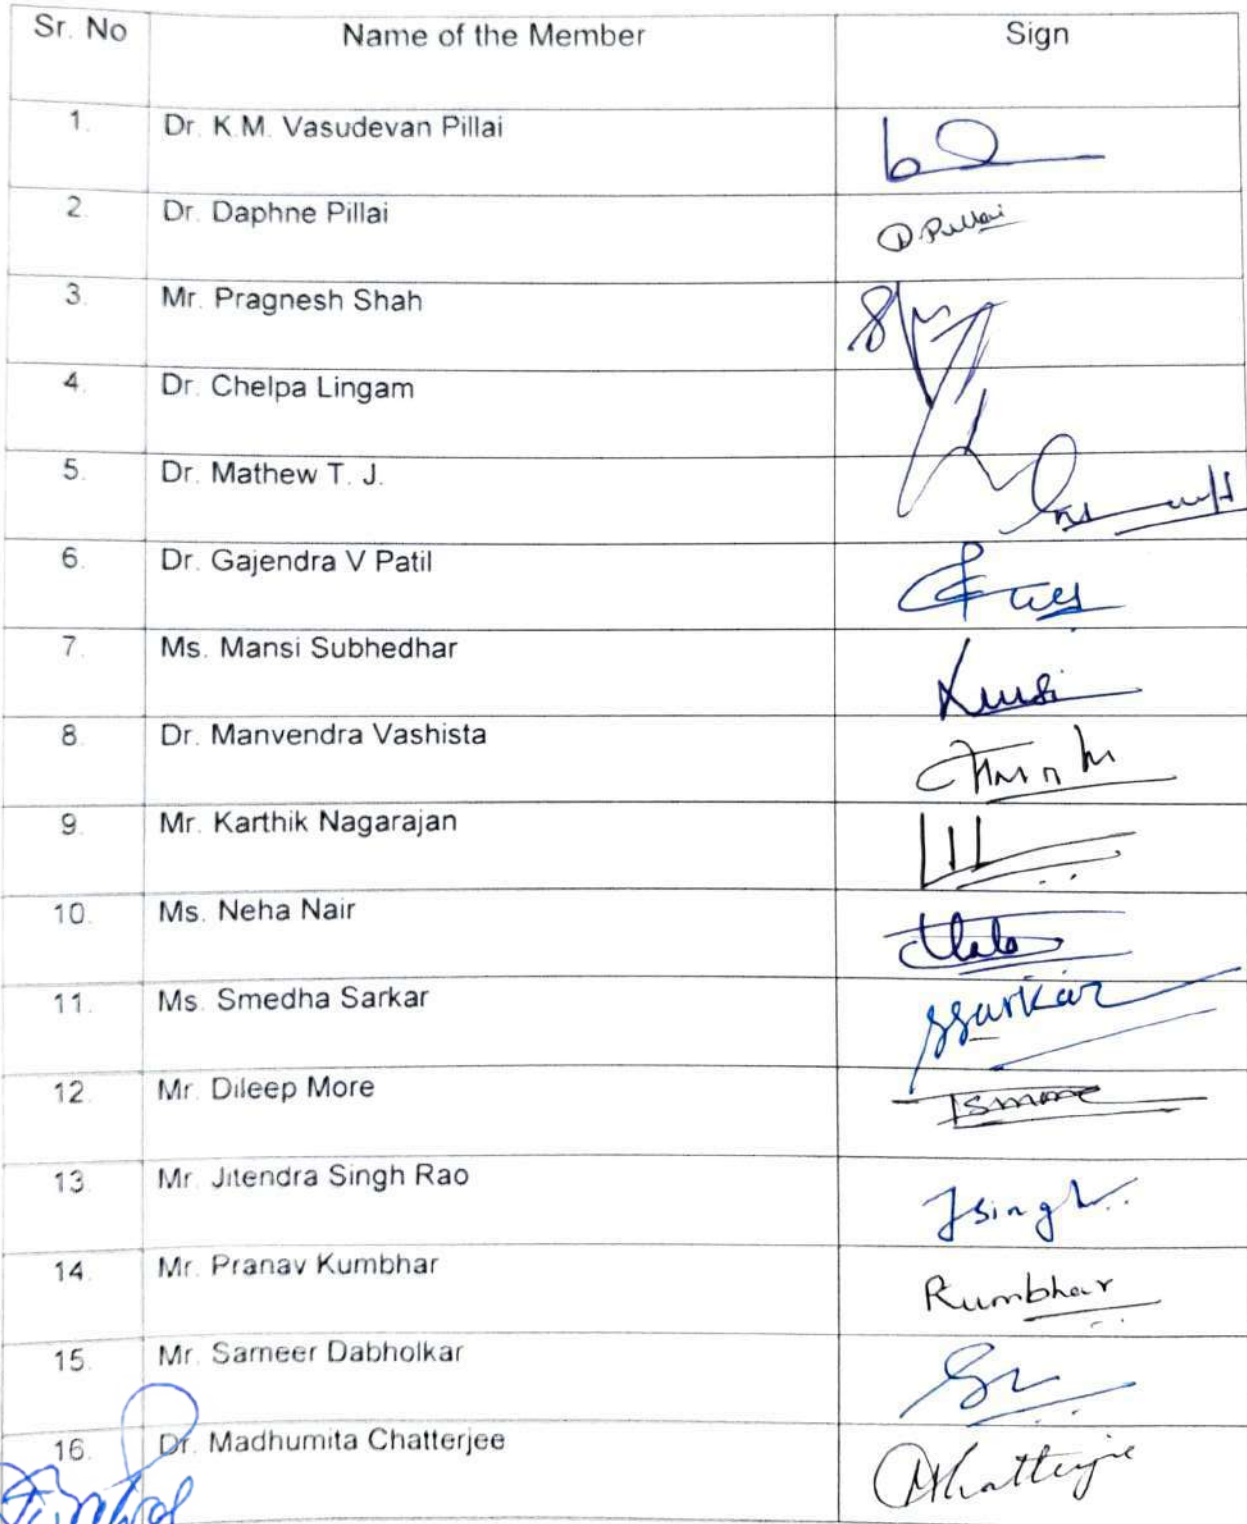 Sr. No Name of the Member Sign
1. Dr. K.M. Vasudevan Pillai
2. Dr. Daphne Pillai D. Pillai
3. Mr. Pragnesh Shah
4. Dr. Chelpa Lingam
5. Dr. Mathew T. J.
6. Dr. Gajendra V Patil
7. Ms. Mansi Subhedhar
8. Dr. Manvendra Vashista
9. Mr. Karthik Nagarajan
10. Ms. Neha Nair
11. Ms. Smedha Sarkar SSarkar
12. Mr. Dileep More
13. Mr. Jitendra Singh Rao Jsingh
14. Mr. Pranav Kumbhar Kumbhar
15. Mr. Sameer Dabholkar
16. Dr. Madhumita Chatterjee MChatterjee